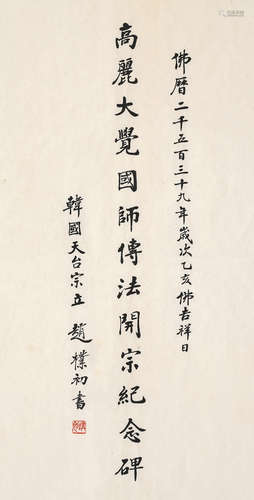 佛曆二千五百三十九年歲次乙亥佛吉祥日
高麗大覺國師傳法開宗紀念碑
韓國天台宗立 趙樸初書